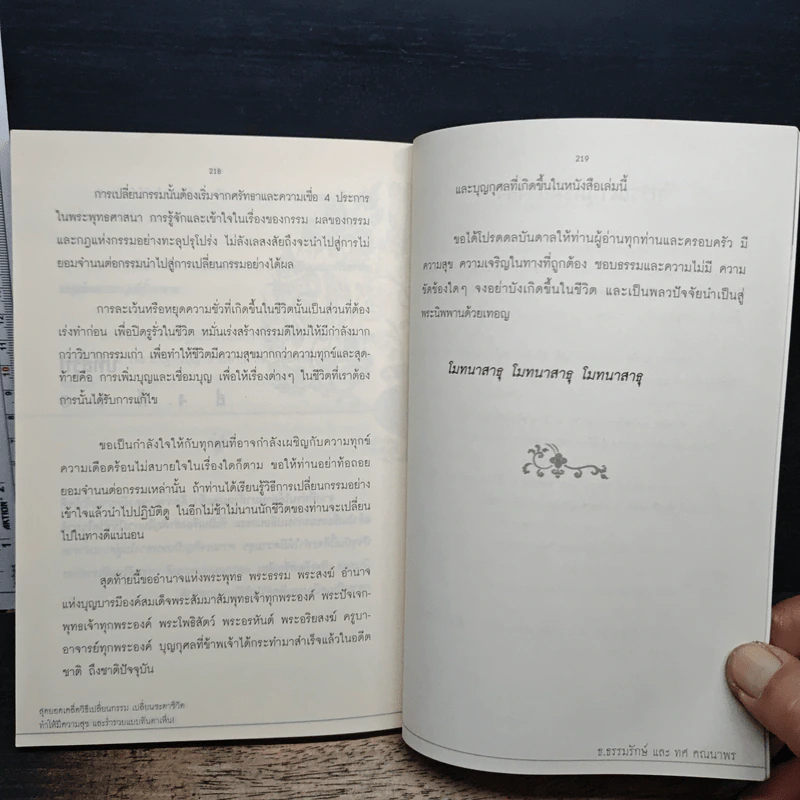 218
การเปลี่ยนกรรมนั้นต้องเริ่มจากศรัทธาและความเชื่อ 4 ประการ
ในพระพุทธศาสนา การรู้จักและเข้าใจในเรื่องของกรรม ผลของกรรม
และกฎแห่งกรรมอย่างทะลุปรุโปร่ง ไม่ลังเลสงสัยถึงจะนำไปสู่การไม่
ยอมจำนนต่อกรรมนำไปสู่การเปลี่ยนกรรมอย่างได้ผล
การละเว้นหรือหยุดความชั่วที่เกิดขึ้นในชีวิตนั้นเป็นส่วนที่ต้อง
เร่งทำก่อน เพื่อปิดรูรั่วในชีวิต หมั่นเร่งสร้างกรรมดีใหม่ให้มีกำลังมาก
กว่าวิบากกรรมเก่า เพื่อทำให้ชีวิตมีความสุขมากกว่าความทุกข์และสุด-
ท้ายคือ การเพิ่มบุญและเชื่อมบุญ เพื่อให้เรื่องต่างๆ ในชีวิตที่เราต้อง
การนั้นได้รับการแก้ไข
ขอเป็นกำลังใจให้กับทุกคนที่อาจกำลังเผชิญกับความทุกข์
ความเดือดร้อนไม่สบายใจในเรื่องใดก็ตาม ขอให้ท่านอย่าท้อถอย
ยอมจำนนต่อกรรมเหล่านั้น ถ้าท่านได้เรียนรู้วิธีการเปลี่ยนกรรมอย่าง
เข้าใจแล้วนำไปปฏิบัติดู ในอีกไม่ช้าไม่นานนักชีวิตของท่านจะเปลี่ยน
ไปในทางดีแน่นอน
สุดท้ายนี้ขออำนาจแห่งพระพุทธ พระธรรม พระสงฆ์ อำนาจ
แห่งบุญบารมีองค์สมเด็จพระสัมมาสัมพุทธเจ้าทุกพระองค์ พระปัจเจก-
พุทธเจ้าทุกพระองค์ พระโพธิสัตว์ พระอรหันต์ พระอริยสงฆ์ ครูบา-
อาจารย์ทุกพระองค์ บุญกุศลที่ข้าพเจ้าได้กระทำมาสำเร็จแล้วในอดีต
ชาติ ถึงชาติปัจจุบัน
สุดยอดเคล็ดวิธีเปลี่ยนกรรม เปลี่ยนชะตาชีวิต
ทำให้มีความสุข และร่ำรวยแบบทันตาเห็น!
219
และบุญกุศลที่เกิดขึ้นในหนังสือเล่มนี้
ขอได้โปรดดลบันดาลให้ท่านผู้อ่านทุกท่านและครอบครัว มี
ความสุข ความเจริญในทางที่ถูกต้อง ชอบธรรมและความไม่มี ความ
ขัดข้องใดๆ จงอย่าบังเกิดขึ้นในชีวิต และเป็นพลวปัจจัยนำเป็นสู่
พระนิพพานด้วยเทอญ
โมทนาสาธุ โมทนาสาธุ โมทนาสาธุ
ธ.ธรรมรักษ์ และ ทศ คณนาพร